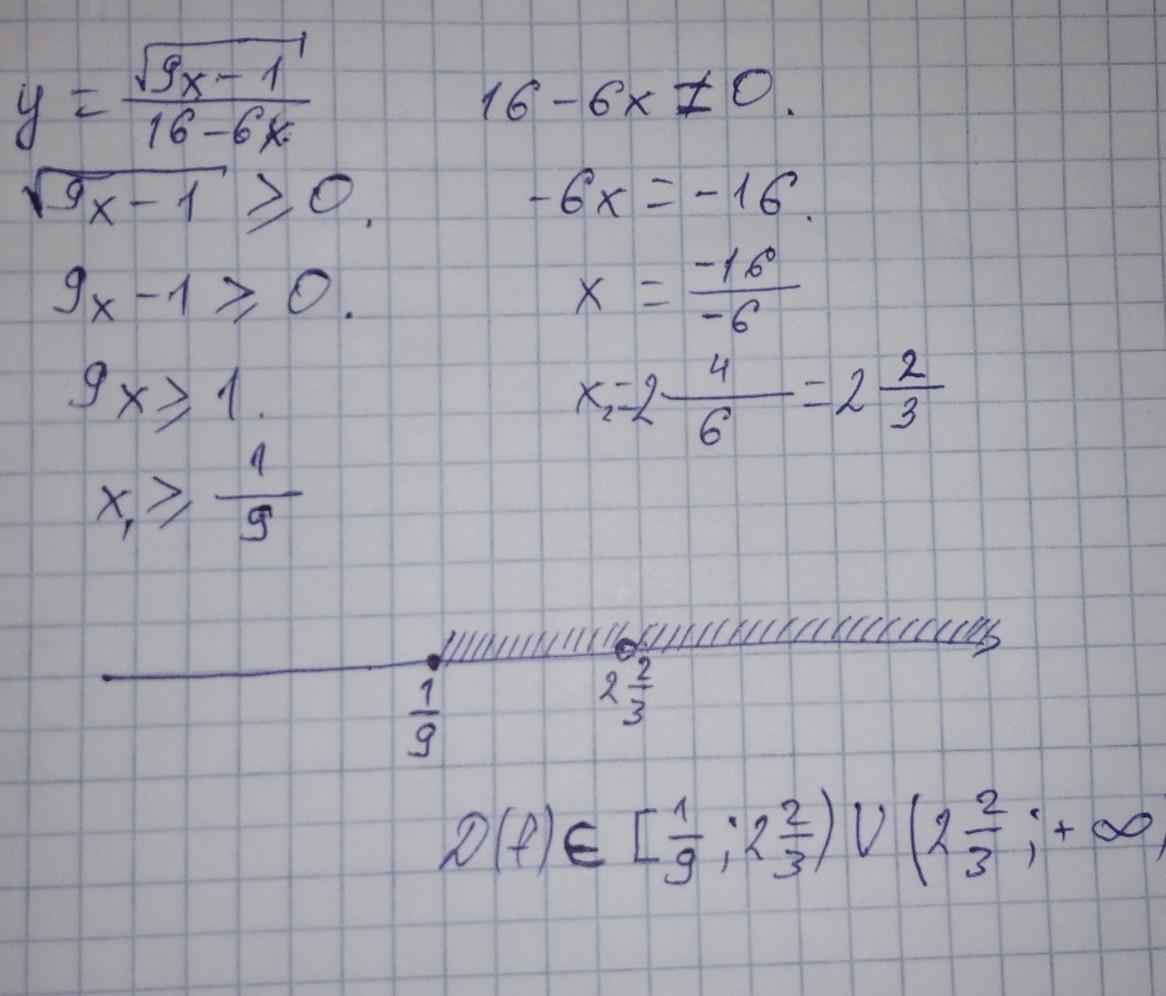 y = √(9x-1) / (16-6x)
√(9x-1) ≥ 0.
9x-1 ≥ 0.
9x ≥ 1.
x₁ ≥ 1/9
16-6x ≠ 0.
-6x = -16.
x = -16/-6
x₂ = 2 4/6 = 2 2/3
1/9 2 2/3
D(f) ∈ [1/9; 2 2/3) U (2 2/3; +∞)